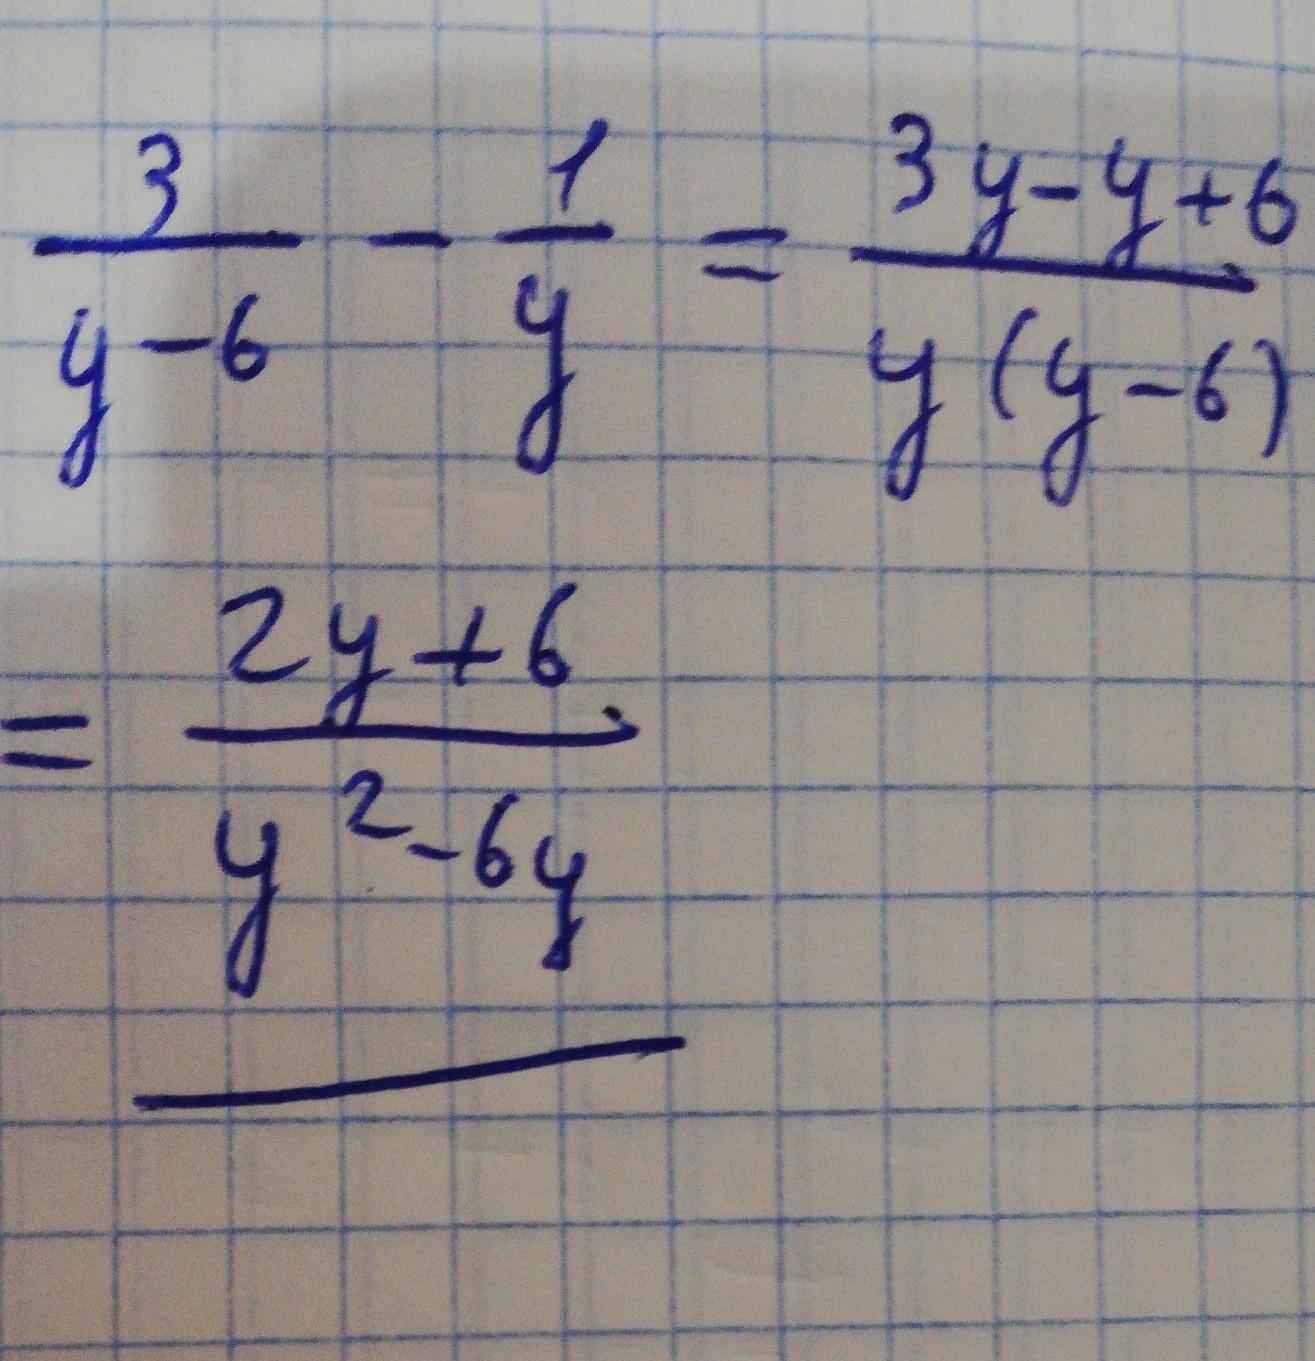 3/(y-6) - 1/y = (3y-y+6)/(y(y-6))
= (2y+6)/(y²-6y)